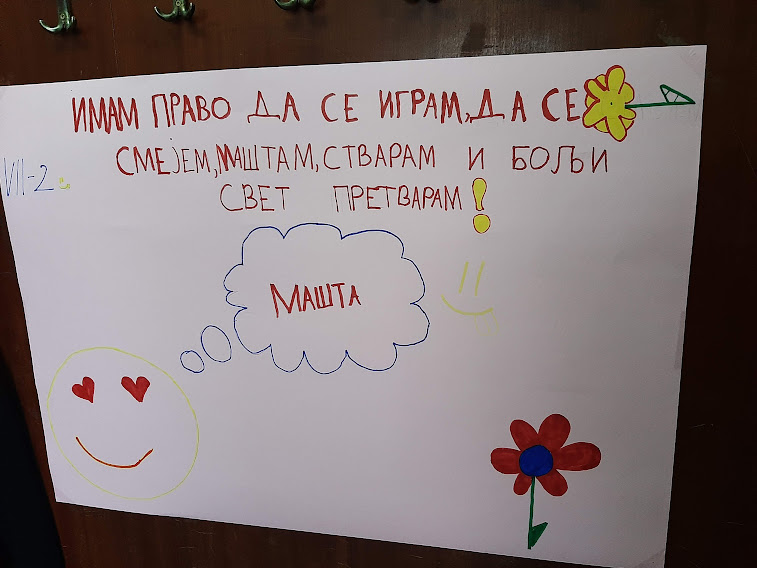 ИМАМ ПРАВО ДА СЕ ИГРАМ, ДА СЕ
СМЕЈЕМ, МАШТАМ, СТВАРАМ И БОЉИ
VII-2
СВЕТ ПРЕТВАРАМ!
МАШТА